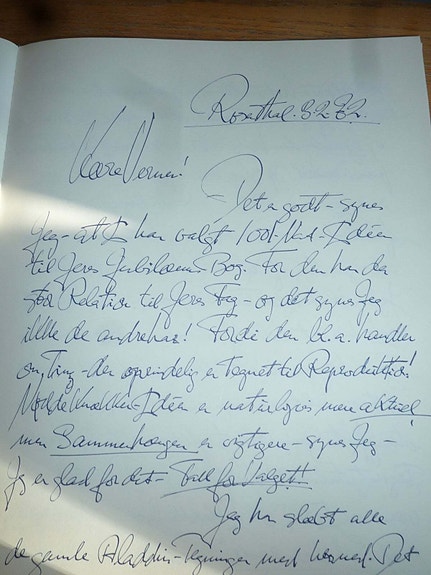 Rosenthal. 3.2.82.
Kære Verner!
Det er godt - synes
Jeg - at I har valgt 1001-Nat-Idéen
til Jeres Jubilæums-Bog. For den har da
stor Relation til Jeres Fag - og det synes Jeg
ikke de andre har! Fordi den bl.a. handler
om Ting - der oprindelig er tegnet til Reproduktion!
er naturligvis mere aktuel
men Sammenhængen er vigtigere - synes Jeg -
Jeg er glad for det - Tak for Valget!!
Jeg har slæbt alle
de gamle Aladdin-Tegninger med herned. Det